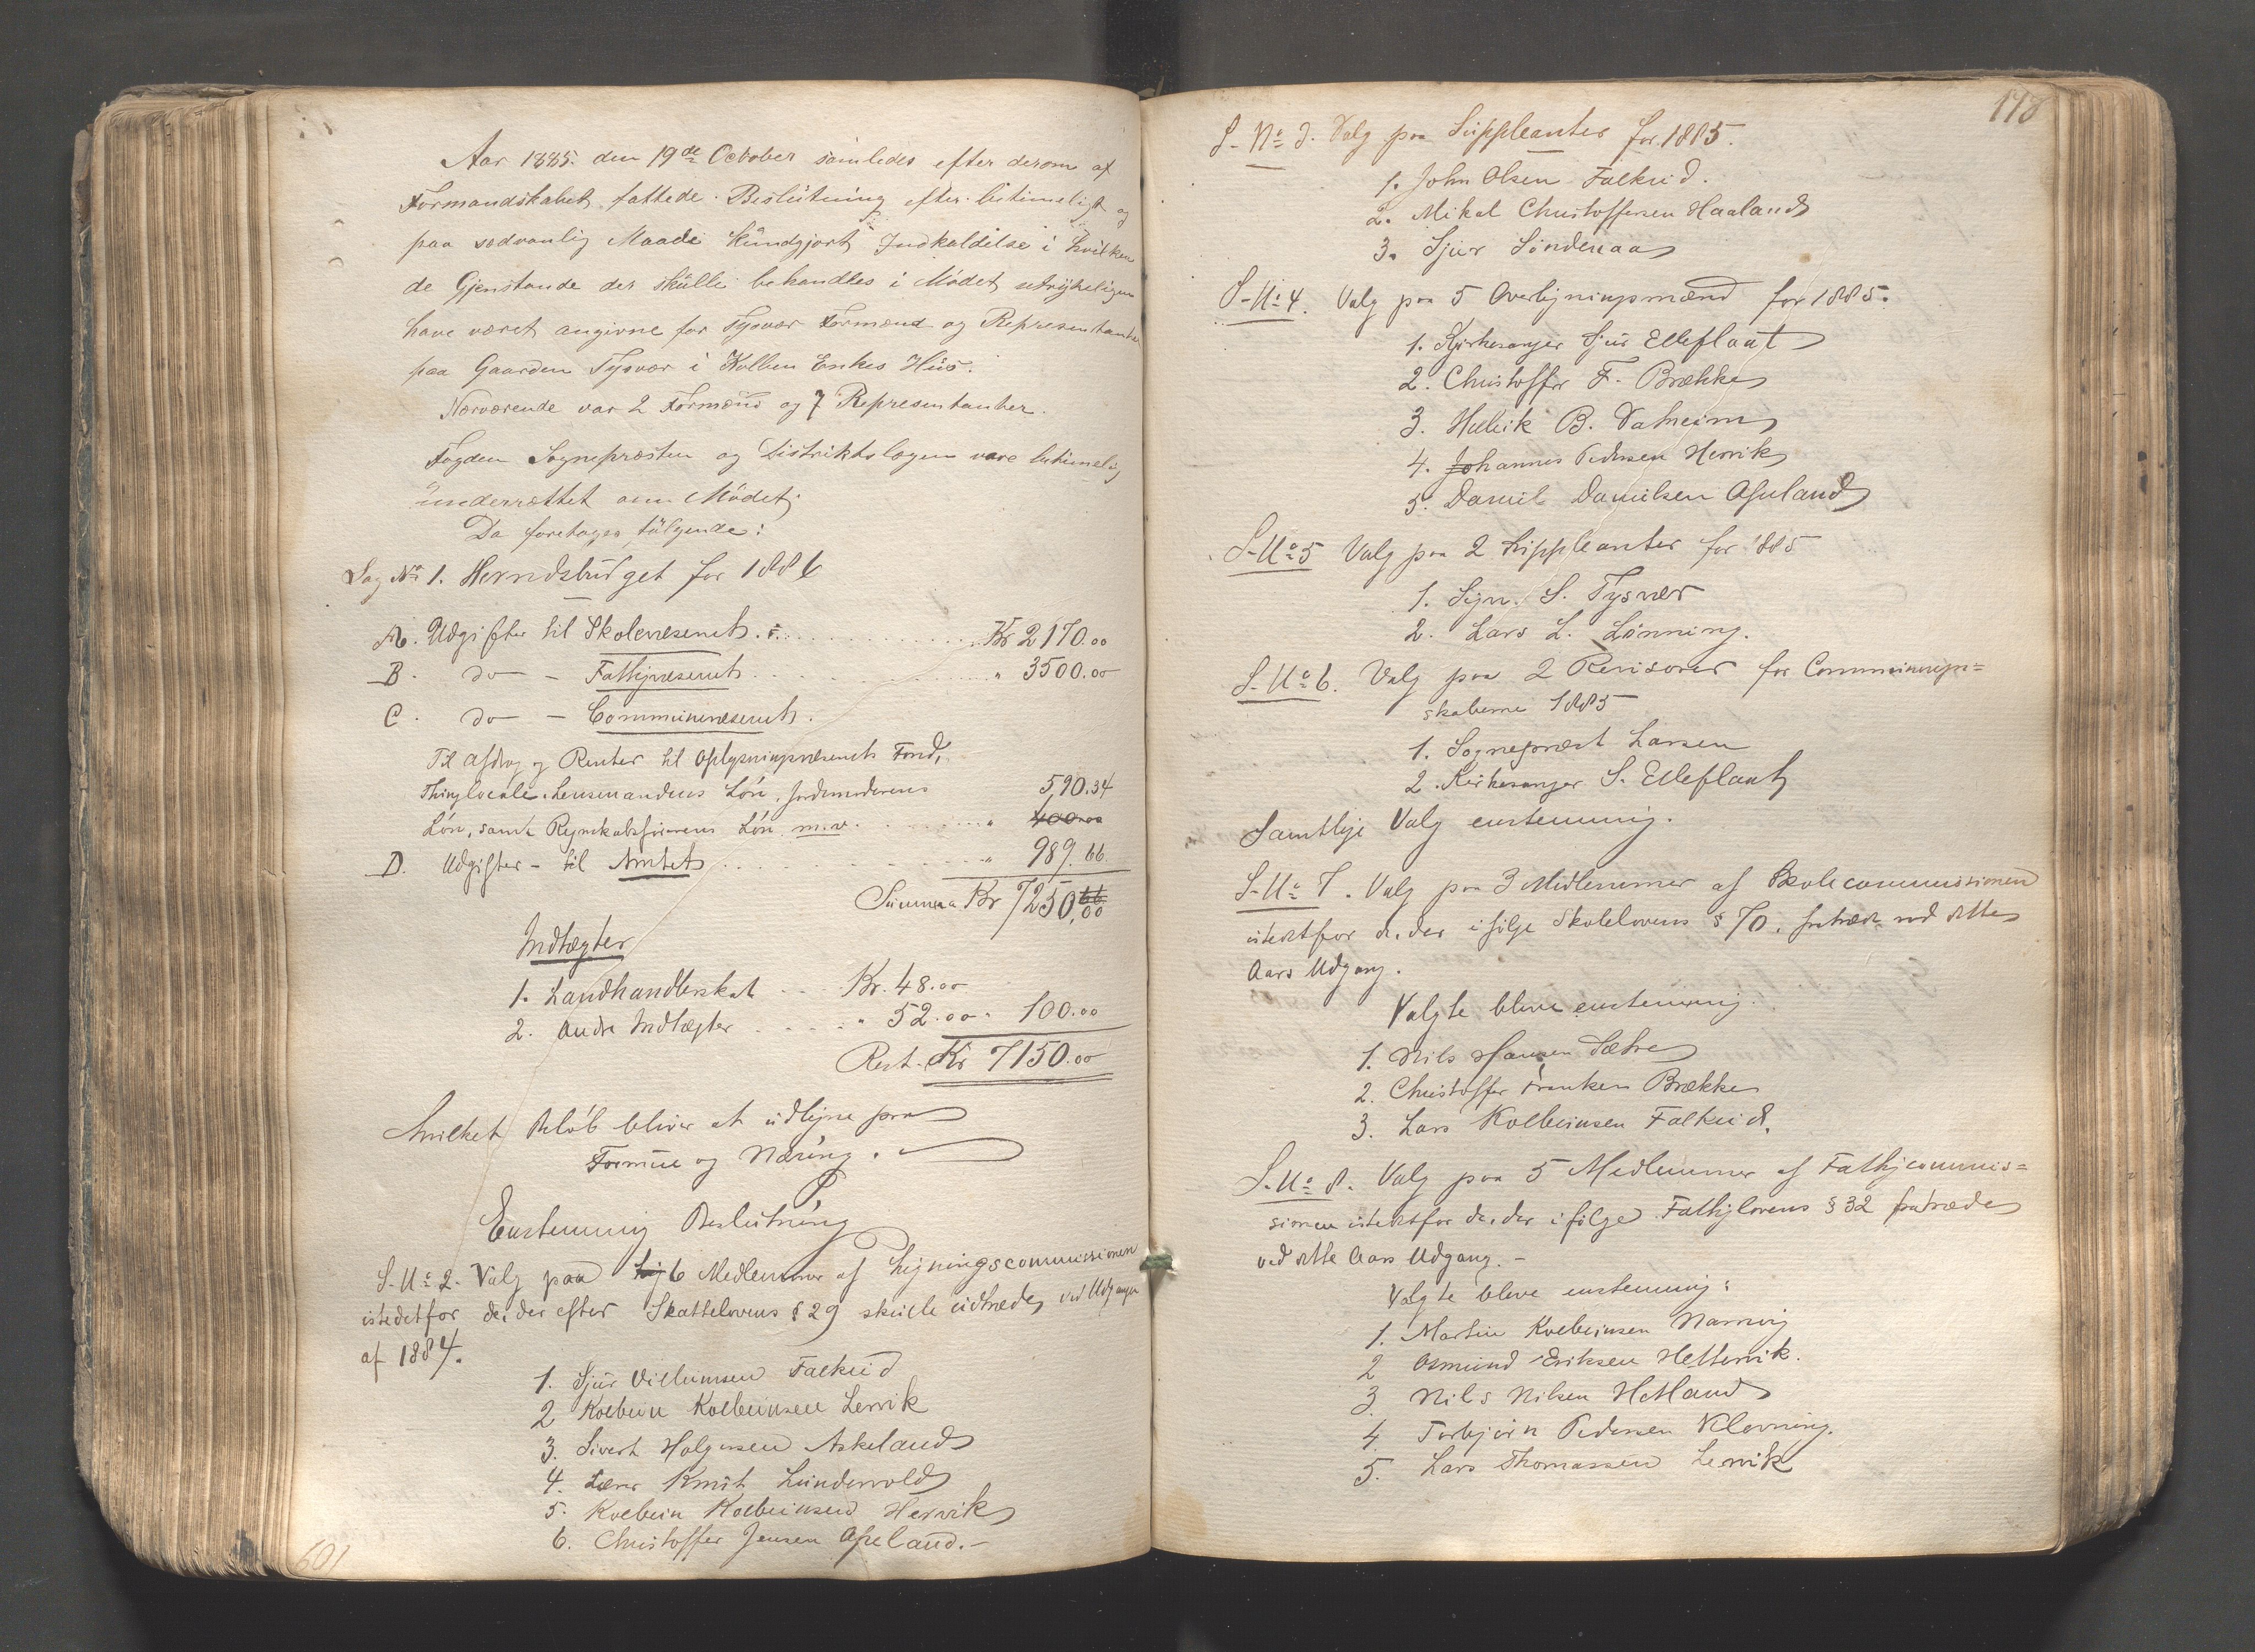 Aar 1885. den 19de October samledes efter derom af
Formandskabet fattede Beslutning efter betimeligt og
paa sædvanlig Maade kundgjort Indkaldelse i hvilken
de Gjenstande der skulle behandles i Mødet udtrykkeligen
have været angivne for Tysvær Formænd og Repræsentanter
paa Gaarden Tysvær i Kolben Enkes Hus.
Nærværende var 2 Formænd og 7 Repræsentanter.
Fogden Sognepræsten og Distriktslægen vare betimelig
underrættet om Mödet;
Da foretoges fölgende:
Sag No 1. Herredsbudget for 1886
A. Udgifter til Skolevæsenet. Kr 2170.00
B. do - Fattigvæsenet " 3500.00
C. do - Communevæsenet.
Til Afdrag og Renter til Oplysningsvæsenets Fond,
Thinglocale, Lensmandens Lön, Jordemoderens 590.34
Lön, samt Regnskabsförerens Lön m.v. " 400.00
D. Udgifter - til Amtet " 989.66
Summa Kr 7250,00
Indtægter
1. Landhandlerskat Kr. 48.00
2. Andre Indtægter " 52.00 " 100.00
Rest. Kr 7150.00
hvilket Beløb bliver at udligne paa
Formue og Næring.
Enstemmig Beslutning
S. No 2. Valg paa 6 Medlemmer af Ligningscommissionen
istedetfor de, der efter Skattelovens § 29 skulle udtræde, ved Udgangen
af 1884.
1. Sjur Villumsen Falkeid
2 Kolbein Kolbeinsen Lervik
3. Sivert Holgersen Askeland
4. Lærer Knut Lundervold
5. Kolbein Kolbeinsen Hervik
6. Christoffer Jensen Apeland.-
601
178
S. No 3. Valg paa Suppleanter for 1885.
1. John Olsen Falkeid.
2. Mikal Christoffersen Haaland
3. Sjur Söndenaa
S. No 4. Valg paa 5 Overligningsmænd for 1885.
1. Kirkesanger Sjur Elleflaat
2. Christoffer F. Brække
3. Helleik B. Vatneim
4. Johannes Pedersen Hervik
5. Daniel Danielsen Apeland
S. No 5 Valg paa 2 Suppleanter for 1885
1. Sjur S. Tysvær
2. Lars L. Lönning.
S. No 6. Valg paa 2 Revisorer for Communeregn=
skaberne 1885
1. Sognepræst Larsen
2. Kirkesanger S. Elleflaat
Samtlige Valg enstemmig.
S. No 7. Valg paa 3 Medlemmer af Skolecommissionen
istedetfor de, der ifölge Skolelovens § 70, fratræde ved dette
Aars Udgang.
Valgte bleve enstemmig.
1. Nils Hansen Sætre
2. Christoffer Franksen Brække
3. Lars Kolbeinsen Falkeid.
S. No 8. Valg paa 5 Medlemmer af Fattigcommis=
sionen istedetfor de, der ifölge Fattiglovens § 32 fratræde
ved dette Aars Udgang.-
Valgte bleve enstemmig:
1. Martin Kolbeinsen Narravig
2 Osmund Eriksen Hettervik.
3 Nils Nilsen Hetland
4. Torbjörn Pedersen Klovning.
5. Lars Thomassen Lervik